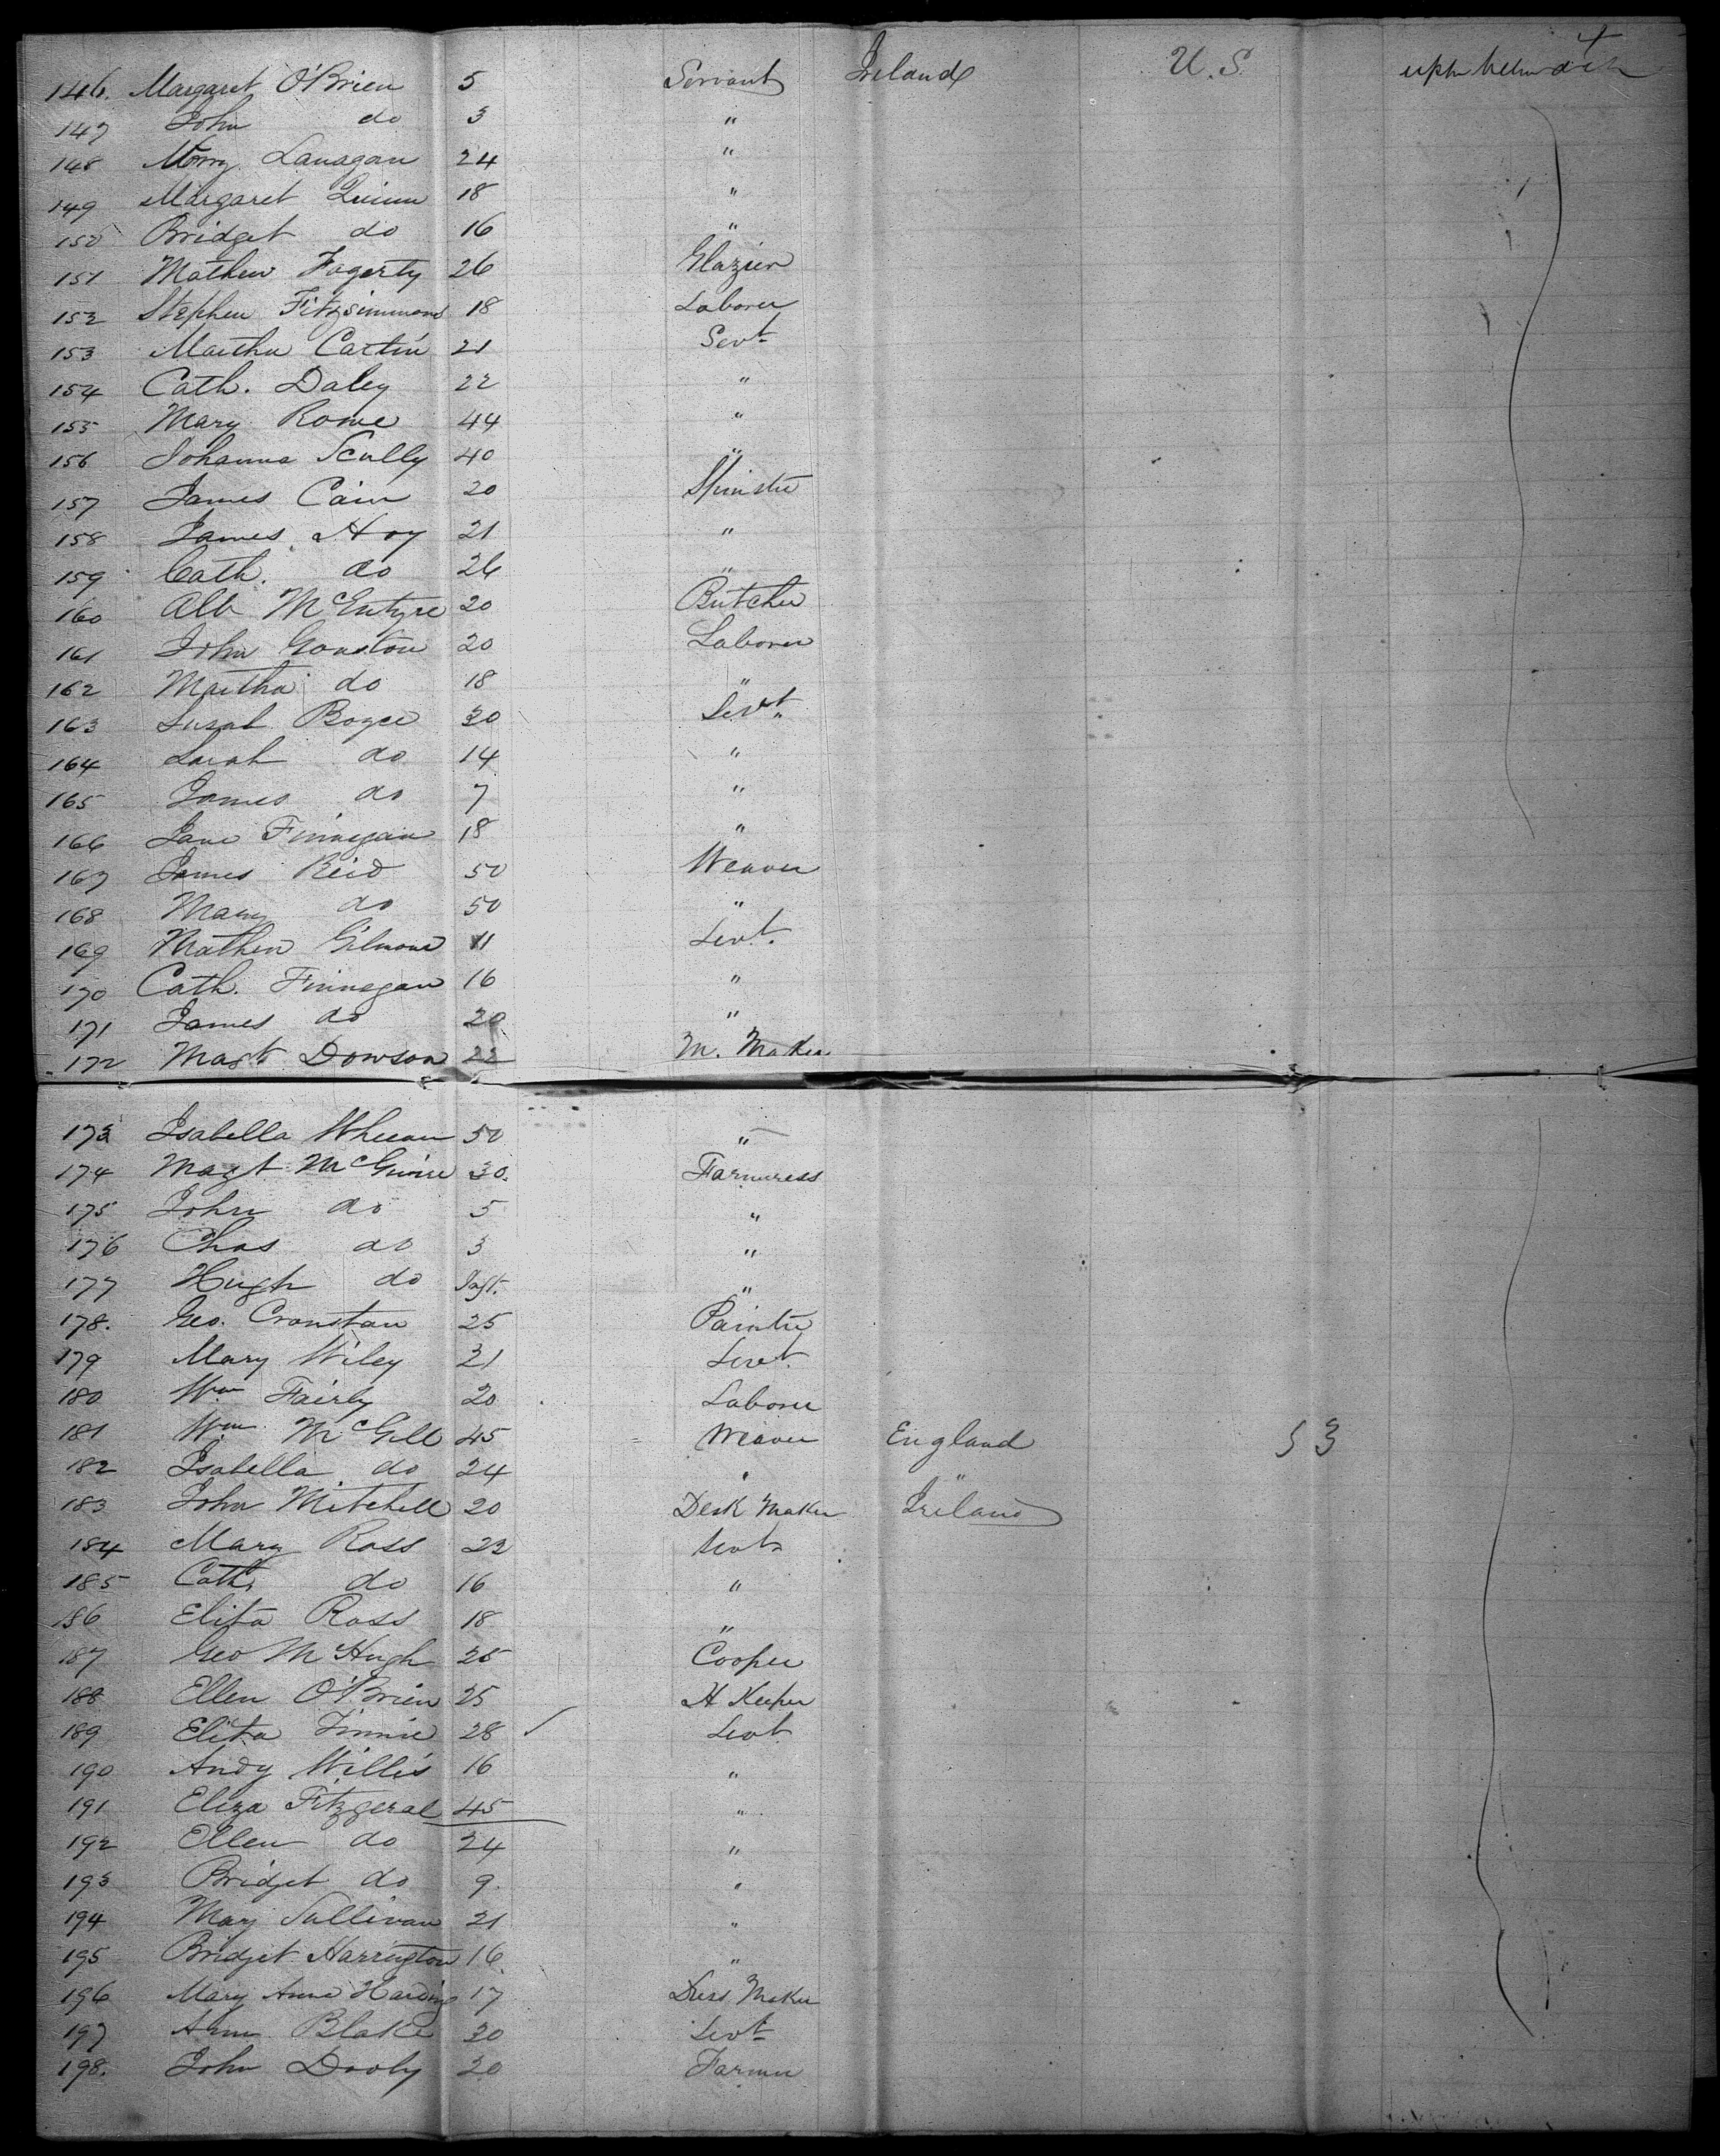 4
146. Margaret O'Brien 5 Servant Ireland U.S.
147 John do 3 "
148 Mary Lanagan 24 "
149 Margaret Quinn 18 "
150 Bridget do 16 "
151 Mathew Fogerty 26 Glazier
152 Stephen Fitzsimmons 18 Laborer
153 Martha Cartin 21 Sevt
154 Cath. Daley 22 "
155 Mary Rowe 44 "
156 Johanna Scully 40 "
157 James Cain 20 Spinster
158 James Hoy 21 "
159 Cath. do 26 "
160 Alb McEntyre 20 Butcher
161 John Gonston 20 Laborer
162 Martha do 18 "
163 Susah Boyce 30 Sevt "
164 Sarah do 14 "
165 James do 7 "
166 Jane Finnegan 18 "
167 James Reid 50 Weaver
168 Mary do 50 "
169 Mathew Gilmore 11 Sevt.
170 Cath. Finnagan 16 "
171 James do 20 "
172 Magt Dowson 22 M. Maker
173 Isabella 50 "
174 Magt McGuire 30. Farmeress
175 John do 5 "
176 Chas do 3 "
177 Hugh do Inft. "
178. Geo. Cranstan 25 Painter
179 Mary Wiley 21 Sevt.
180 Wm Fairly 20 Laborer
181 Wm McGill 45 Weaver England 53
182 Isabella do 24 " "
183 John Mitchell 20 Desk Maker Ireland
184 Mary Ross 22 Sevt
185 Cath do 16 "
186 Eliza Ross 18 "
187 Geo McHugh 25 Cooper
188 Ellen O'Brien 25 H Keeper
189 Eliza Finnie 28 Sevt
190 Andy Willis 16 "
191 Eliza Fitzgeral 45 "
192 Ellen do 24 "
193 Bridget do 9. "
194 Mary Sullivan 21 "
195 Bridget Harrington 16. "
196 Mary Anne Harding 17 Dress Maker
197 Ann Blake 30 Sevt
198. John Dooly 20 Farmer